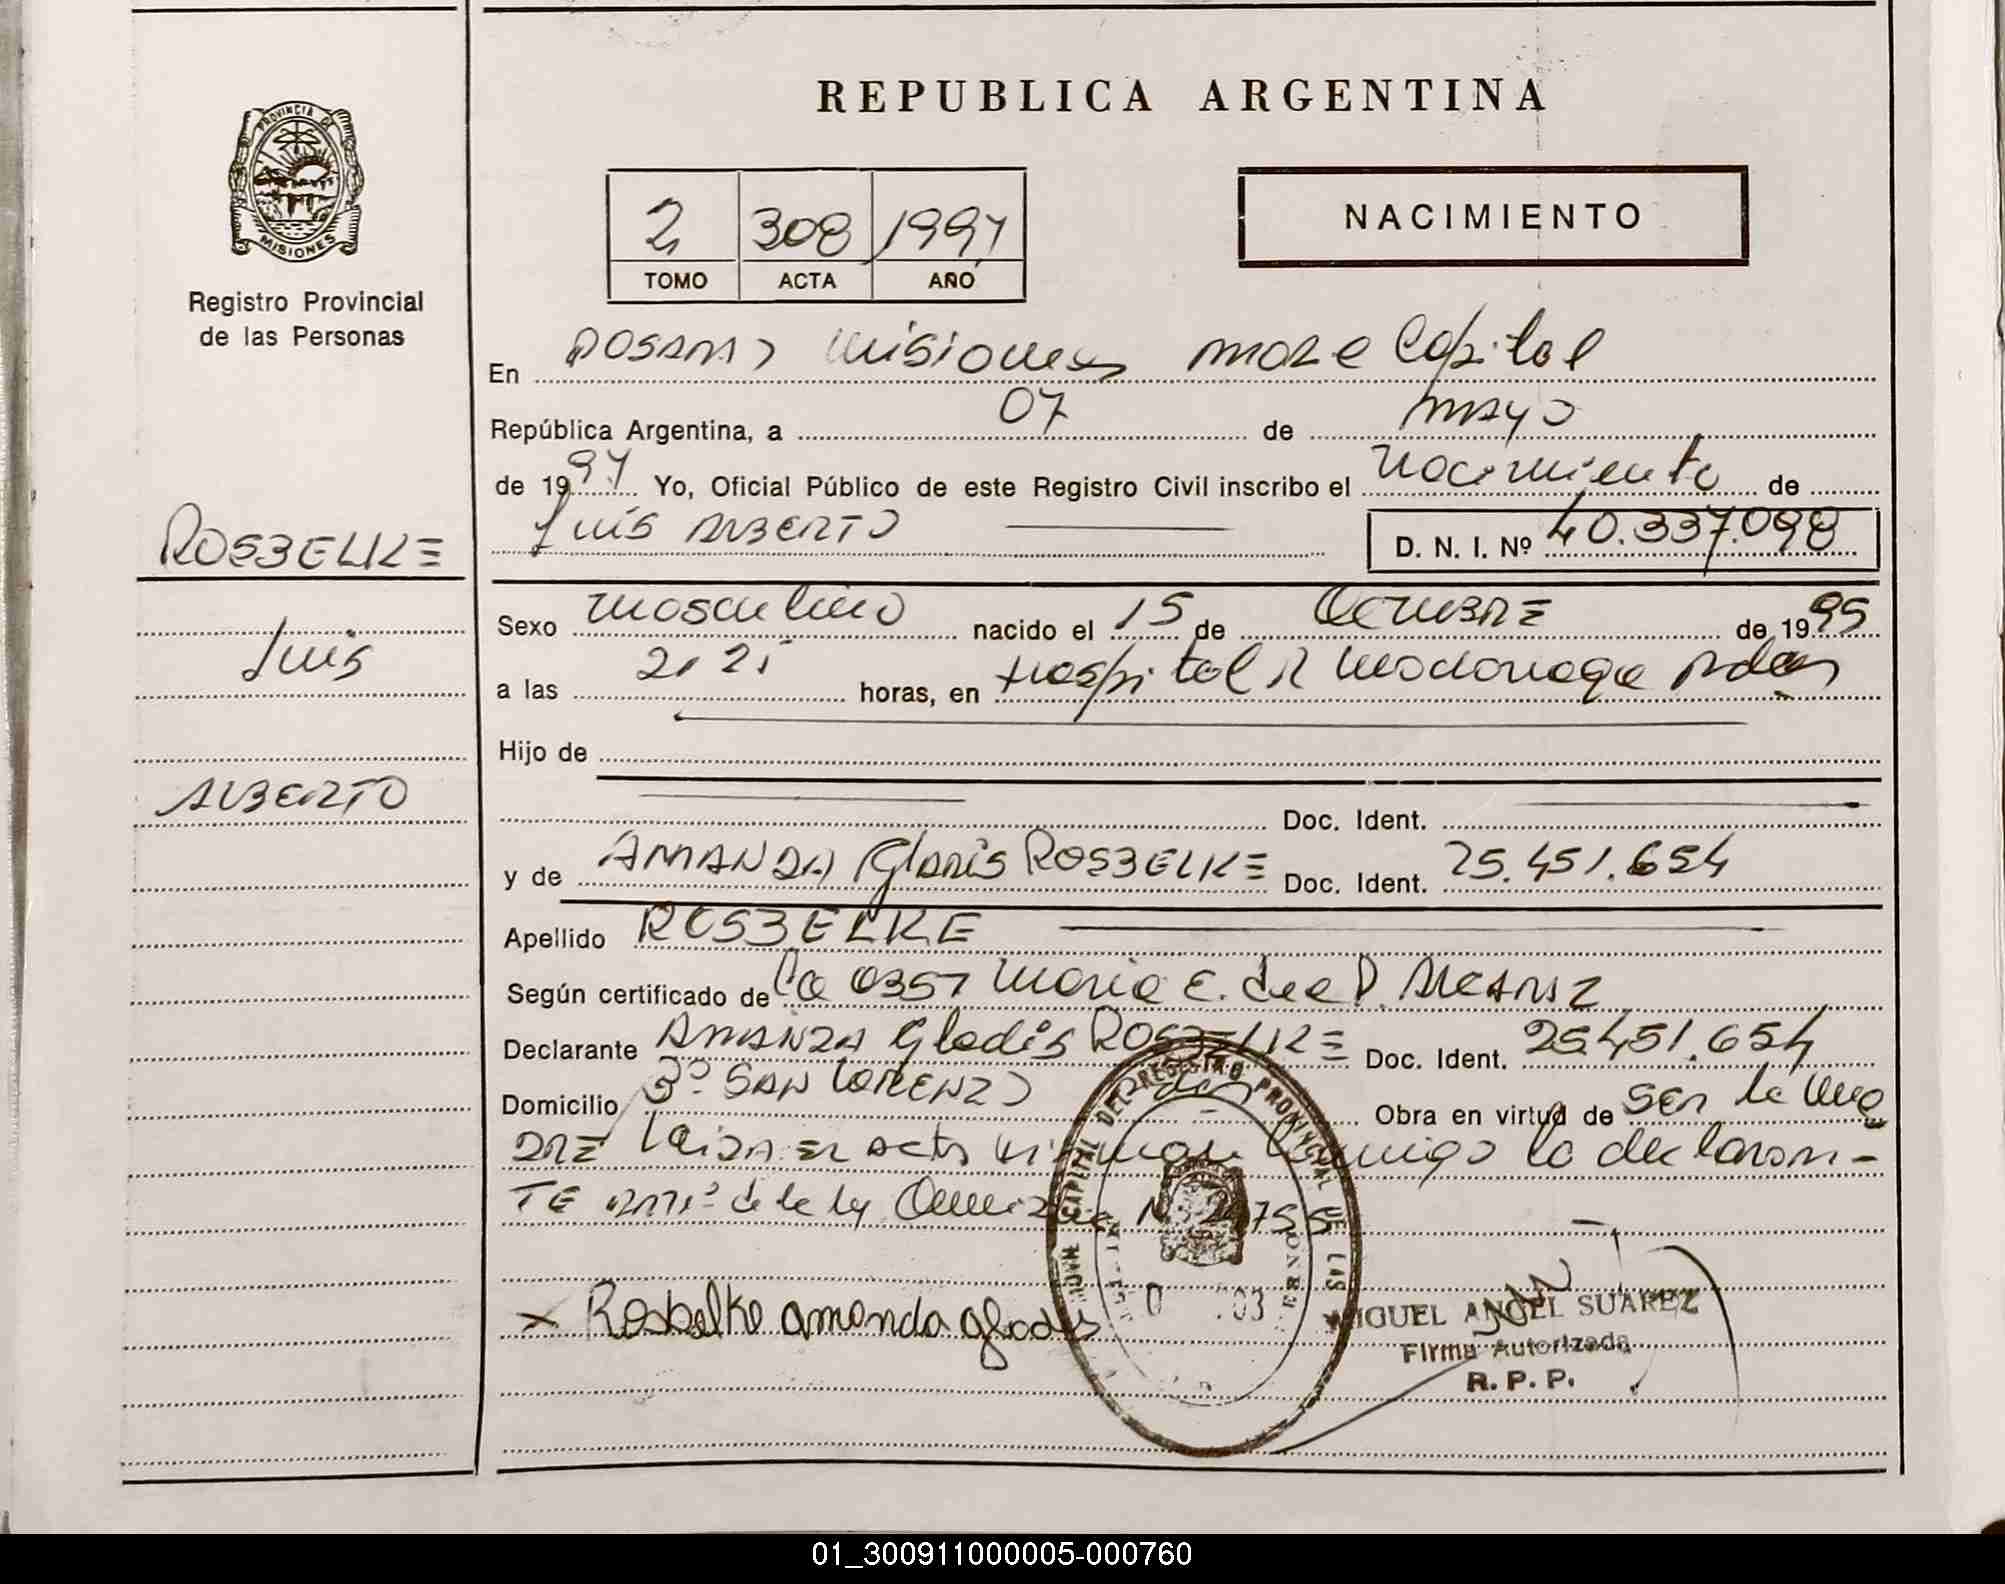 REPUBLICA ARGENTINA
PROVINCIA DE
MISIONES
Registro Provincial
de las Personas
2 308 1997
TOMO ACTA AÑO
NACIMIENTO
En POSADAS Misiones Capital
República Argentina, a 07 de MAYO
de 1997 Yo, Oficial Público de este Registro Civil inscribo el Nacimiento de
Luis ALBERTO D. N. I. Nº 40.337.098
ROSBELKE
Luis
ALBERTO
Sexo Masculino nacido el 15 de OCTUBRE de 1995
a las 21 25 horas, en Hospital R Madariaga Pdas
Hijo de
Doc. Ident.
y de AMANDA Gladis ROSBELKE Doc. Ident. 25.451.654
Apellido ROSBELKE
Según certificado de 0357 Maria E. del P.
Declarante AMANDA Gladis ROSBELKE Doc. Ident. 25.451.654
Domicilio Bº SAN LORENZO Obra en virtud de ser la Ma
DRE Leida el acta firman conmigo la declaran-
TE de la ley
x Rosbelke amanda gladis
DEL REGISTRO PROVINCIAL DE LAS
MIGUEL ANGEL SUAREZ
Firma Autorizada
R. P. P.
01_300911000005-000760